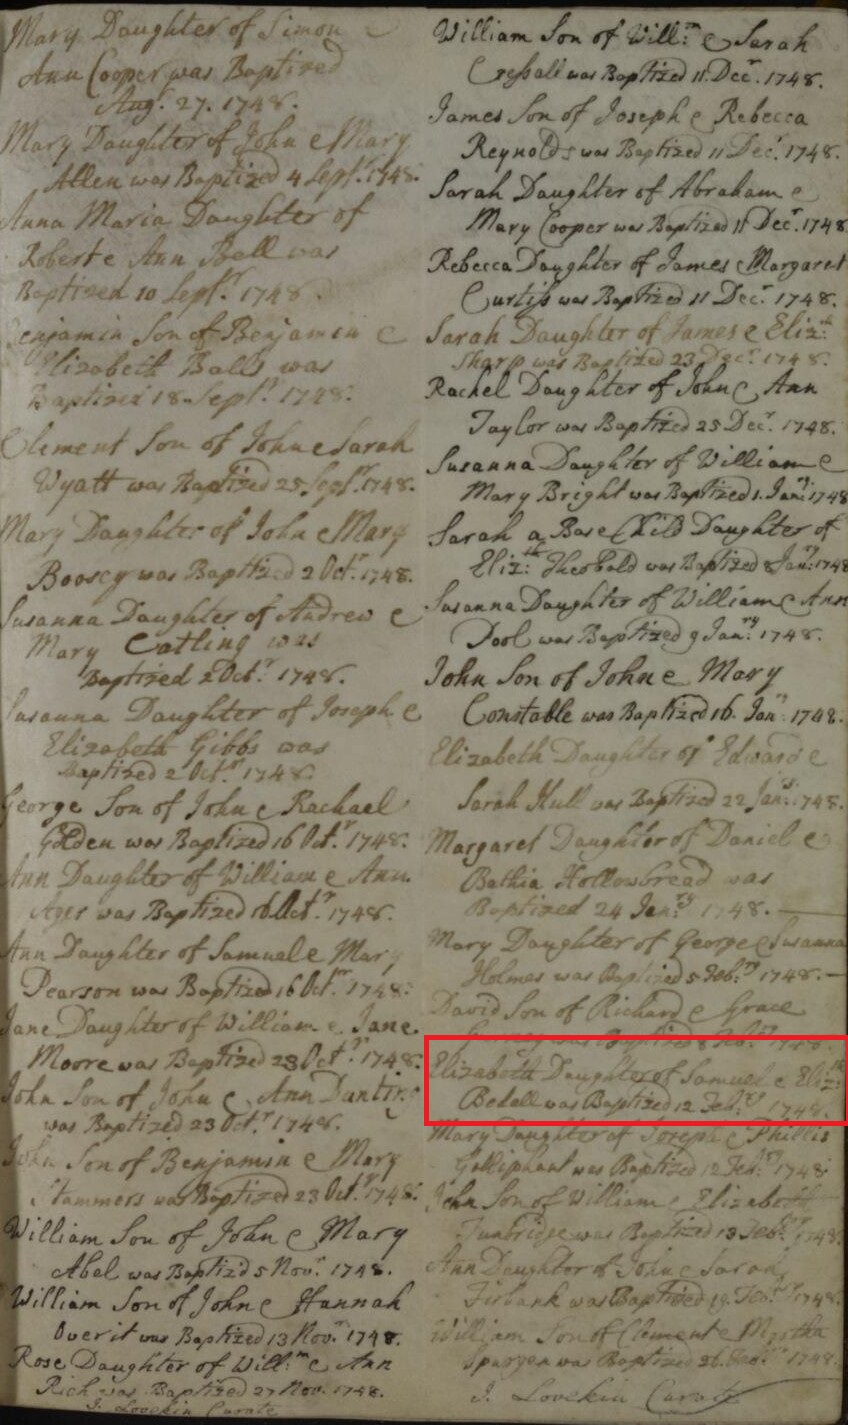 Mary Daughter of Simon e
Ann Cooper was Baptized
Aug. 27. 1748.
Mary Daughter of John e Mary
Allen was Baptized 4 Sept.r 1748.
Anna Maria Daughter of
Robert e Ann Ball was
Baptized 10 Sept.r 1748.
Benjamin Son of Benjamin e
Elizabeth Balls was
Baptized 18 Sept.r 1748.
Clement Son of John e Sarah
Wyatt was Baptized 25 Sept.r 1748.
Mary Daughter of John e Mary
Boosey was Baptized 2 Oct.r 1748.
Susanna Daughter of Andrew e
Mary Catling was
Baptized 2 Oct.r 1748.
Susanna Daughter of Joseph e
Elizabeth Gibbs was
Baptized 2 Oct.r 1748.
George Son of John e Rachael
Golden was Baptized 16 Oct.r 1748.
Ann Daughter of William e Ann
was Baptized 16 Oct.r 1748.
Ann Daughter of Samuel e Mary
Pearson was Baptized 16 Oct.r 1748.
Jane Daughter of William e Jane
Moore was Baptized 23 Oct.r 1748.
John Son of John e Ann
was Baptized 23 Oct.r 1748.
John Son of Benjamin e Mary
Stammers was Baptized 23 Oct.r 1748.
William Son of John e Mary
Abel was Baptiz'd 5 Nov.r 1748.
William Son of John e Hannah
Overit was Baptized 13 Nov.r 1748.
Rose Daughter of Will:m e Ann
Rich was Baptized 27 Nov. 1748.
J. Lovekin Curate
William Son of Will:m e Sarah
Cressall was Baptized 11 Dec.r 1748.
James Son of Joseph e Rebecca
Reynolds was Baptized 11 Dec.r 1748.
Sarah Daughter of Abraham e
Mary Cooper was Baptized 11 Dec.r 1748
Rebecca Daughter of James e Margaret
Curtiss was Baptized 11 Dec.r 1748.
Sarah Daughter of James e Eliz:th
Sharp was Baptized 23 Dec.r 1748.
Rachel Daughter of John e Ann
Taylor was Baptized 25 Dec.r 1748.
Susanna Daughter of William e
Mary Bright was Baptized 1. Jan:ry 1748
Sarah a Base Child Daughter of
Eliz:th Theobald was Baptized 8 Jan:ry 1748
Susanna Daughter of William e Ann
Pool was Baptized 9 Jan:ry 1748.
John Son of John e Mary
Constable was Baptized 16. Jan:ry 1748.
Elizabeth Daughter of Edward e
Sarah Hull was Baptized 22 Jan:ry 1748.
Margaret Daughter of Daniel e
Bathia Hollowbread was
Baptized 24 Jan:ry 1748.
Mary Daughter of George e Susanna
Holmes was Baptized 5 Feb:ry 1748.
David Son of Richard e Grace
was Baptized 8 Feb:ry 1748.
Elizabeth Daughter of Samuel e Eliz:th
Bedall was Baptized 12 Feb:ry 1748.
Mary Daughter of Joseph e Phillis
Golliphant was Baptized 12 Feb:ry 1748
John Son of William e Elizabeth
Tunbridge was Baptized 13 Feb:ry 1748.
Ann Daughter of John e Sarah
Firbank was Baptized 19 Feb:ry 1748.
William Son of Clement e Martha
Spurgen was Baptized 26. Feb:ry 1748.
J. Lovekin Curate